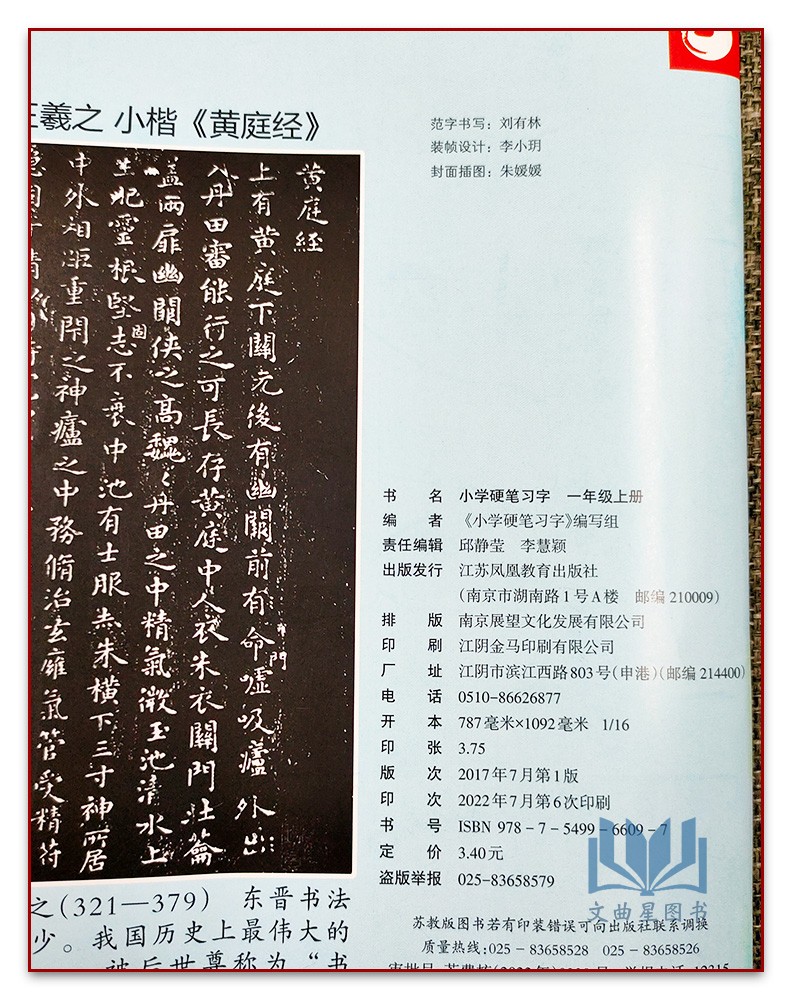 王羲之 小楷《黄庭经》
黄庭经
上有黄庭下關元後有幽闕前有命門噓吸廬外出
入丹田審能行之可長存黄庭中人衣朱衣關門壯籥
蓋兩扉幽闕俠之高巍巍丹田之中精氣微玉池清水上
生肥靈根堅固志不衰中池有士服赤朱横下三寸神所居
中外相距重閇之神廬之中務脩治玄廱氣管受精符
之(321—379) 东晋书法
少。我国历史上最伟大的
被后世尊称为“书
范字书写：刘有林
装帧设计：李小玥
封面插图：朱媛媛
书 名 小学硬笔习字 一年级上册
编 者 《小学硬笔习字》编写组
责任编辑 邱静莹 李慧颖
出版发行 江苏凤凰教育出版社
(南京市湖南路1号A楼 邮编210009)
排 版 南京展望文化发展有限公司
印 刷 江阴金马印刷有限公司
厂 址 江阴市滨江西路803号(申港)(邮编214400)
电 话 0510-86626877
开 本 787毫米×1092毫米 1/16
印 张 3.75
版 次 2017年7月第1版
印 次 2022年7月第6次印刷
书 号 ISBN 978-7-5499-6609-7
定 价 3.40元
盗版举报 025-83658579
文曲星图书
苏教版图书若有印装错误可向出版社联系调换
质量热线:025-83658528 025-83658526